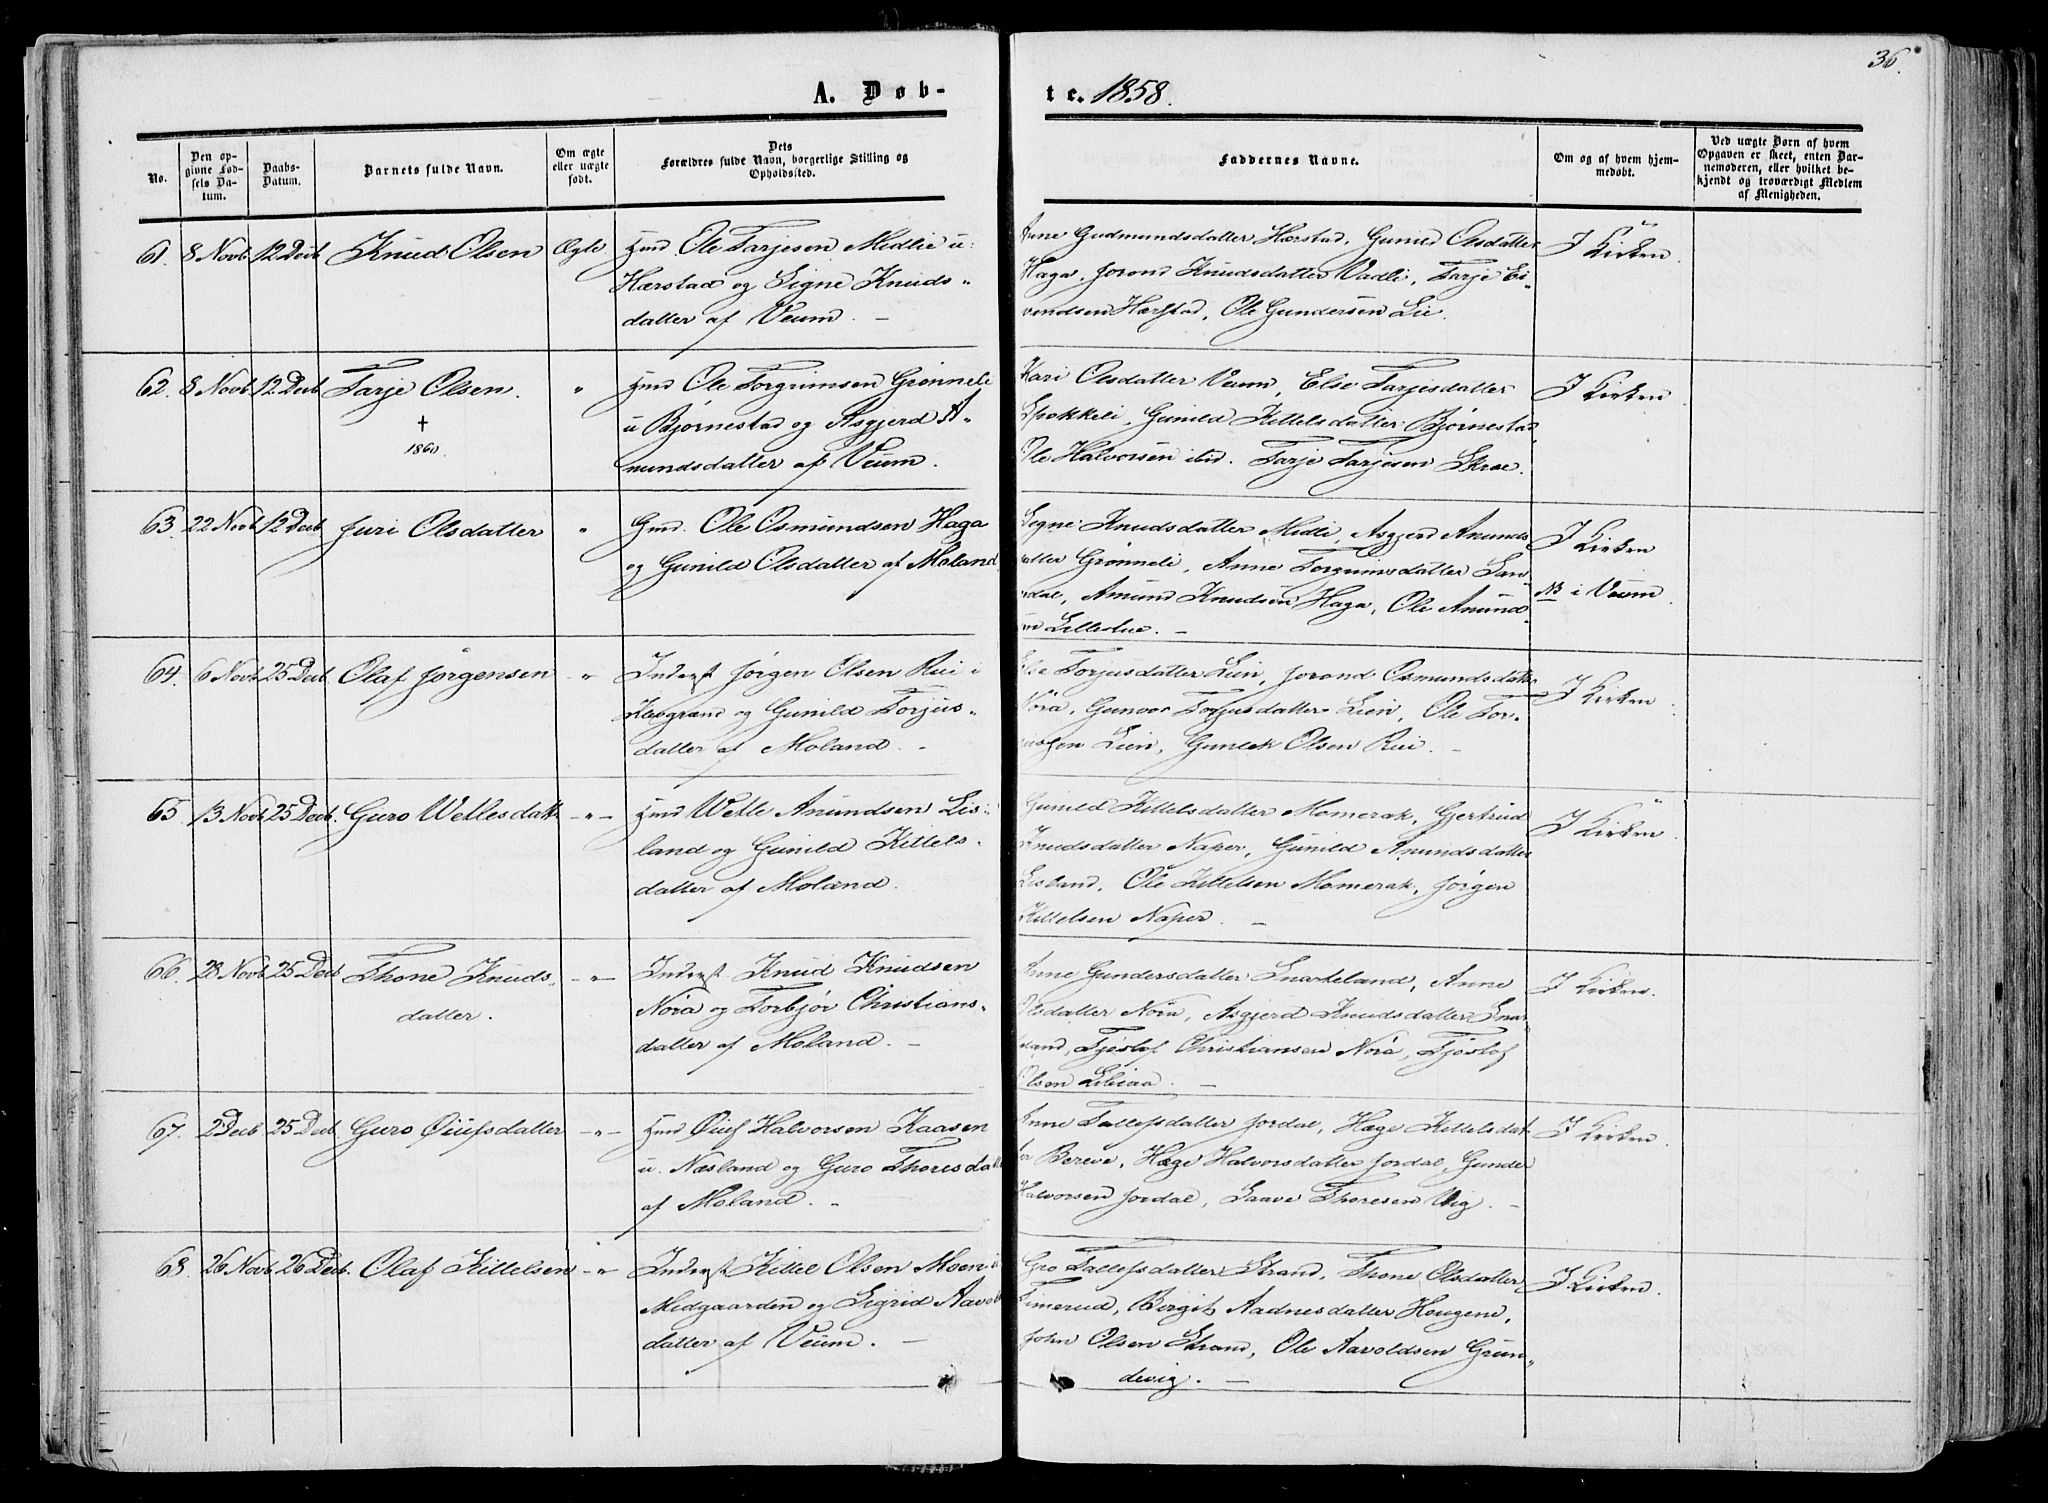 36.
A. Døb-
te. 1858.
No.
Den op-
givne Fød-
sels Da-
tum.
Daabs-
Datum.
Barnets fulde Navn.
Om ægte
eller uægte
født.
Dets
Forældres fulde Navn, borgerlige Stilling og
Opholdssted.
Faddernes Navne.
Om og af hvem hjem-
medøbt.
Ved uægte Børn af hvem
Opgaven er skeet, enten Bar-
nemoderen, eller hvilket be-
kjendt og troværdigt Medlem
af Menigheden.
61. 8 Novb 12 Decb Knud Olsen Ægte Hmd Ole Tarjesen Midlie u:
Hærstad og Signe Knuds-
datter af Veum. -
Anne Gudmundsdatter Hærstad, Gunild Olsdatter
Haga, Jorond Knudsdatter Vadli, Tarje Ei-
vendsen Hærstad, Ole Gundersen Lie.
I Kirken.
62. 8 Novb 12 Decb Tarje Olsen. " Hmd Ole Torgrimsen Grønneli
† u Bjørnestad og Asgjerd A-
1860. nundsdatter af Veum.
Kari Olsdatter Veum, Else Tarjesdatter
Spokkeli, Gunild Kittelsdatter Bjørnestad,
Ole Halvorsen ibid. Tarje Tarjesen Skroe.
I Kirken.
63. 22 Novb 12 Decb Juri Olsdatter " Gmd. Ole Osmundsen Haga
og Gunild Olsdatter af Moland
Signe Knudsdatter Midli, Asgjerd Anunds
datter Grønneli, Anne Torgrimsdatter San-
dal, Amund Knudsen Haga, Ole Anund-
sen Lillestue. -
I Kirken
NB i Veum.
64. 6 Novb 25 Decb. Olaf Jørgensen " Inderst Jørgen Olsen Rui i
og Gunild Torjus-
datter af Moland. -
Else Torjusdatter Lien, Jorond Osmundsdatter
Nøra, Gunvor Torjusdatter Lien, Ole Tor-
jusen Lien, Gunlek Olsen Rui. -
I Kirken.
65. 13 Novb 25 Decb. Guro Wetlesdatt -"- Hmd Wetle Anundsen Lis-
land og Gunild Kittels-
datter af Moland.
Gunild Kittelsdatter Momerak, Gjertrud
Knudsdatter Naper, Gunild Anundsdatter
Lisland, Ole Kittelsen Momerak, Jørgen
Kittelsen Naper. -
I Kirken.
66. 28 Novb 25 Decb Thone Knuds- -"- Inderst Knud Knudsen
datter. Nöra og Torbjør Christians-
datter af Moland. -
Anne Gundersdatter Snarteland, Anne
Olsdatter Nöra, Asgjerd Knudsdatter Snar
teland, Tjøstof Christiansen Nöra, Tjøstof
Olsen
I Kirken.
67. 2 Decb 25 Decb Guro Øiufsdatter -"- Hmd Øiuf Halvorsen Kaasen
u. Næsland og Guro Thoresdatt
af Moland. -
Anne Tallefsdatter Jordal, Hæge Kittelsdat-
ter Bereve, Hæge Halvorsdatter Jordal, Gunder
Halvorsen Jordal, Saave Thoresen Vig. -
I Kirken.
68. 26 Novb 26 Decb. Olaf Kittelsen -"- Inderst Kittel Olsen Moen i
Midgaarden og Sigrid Aavolds
datter af Veum. -
Gro Tallefsdatter Strand, Thone Olsdatter
Timerud, Birgit Aadnesdatter Hougene,
John Olsen Strand, Ole Aavoldsen Grun-
devig. -
I Kirken.